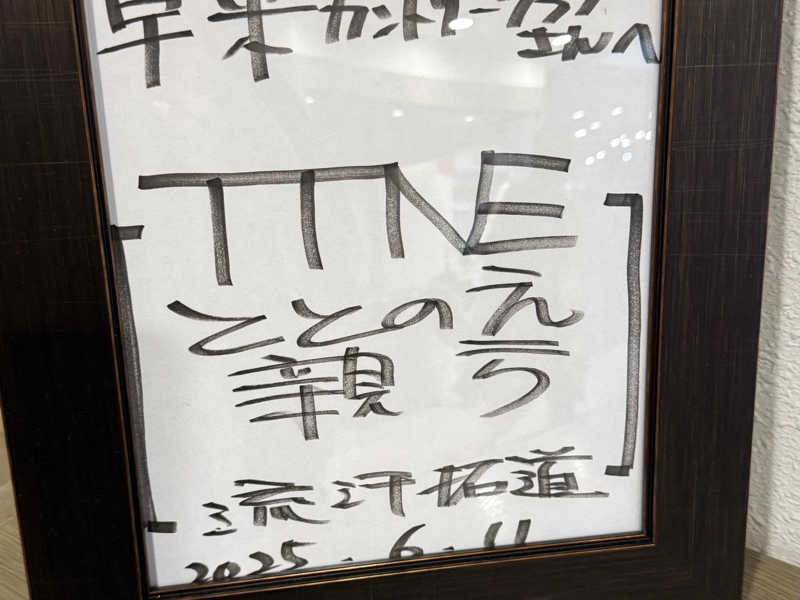 早来カントリークラブ
さんへ
TTNE
ととのえ
親方
流汗拓道
2025.6.11